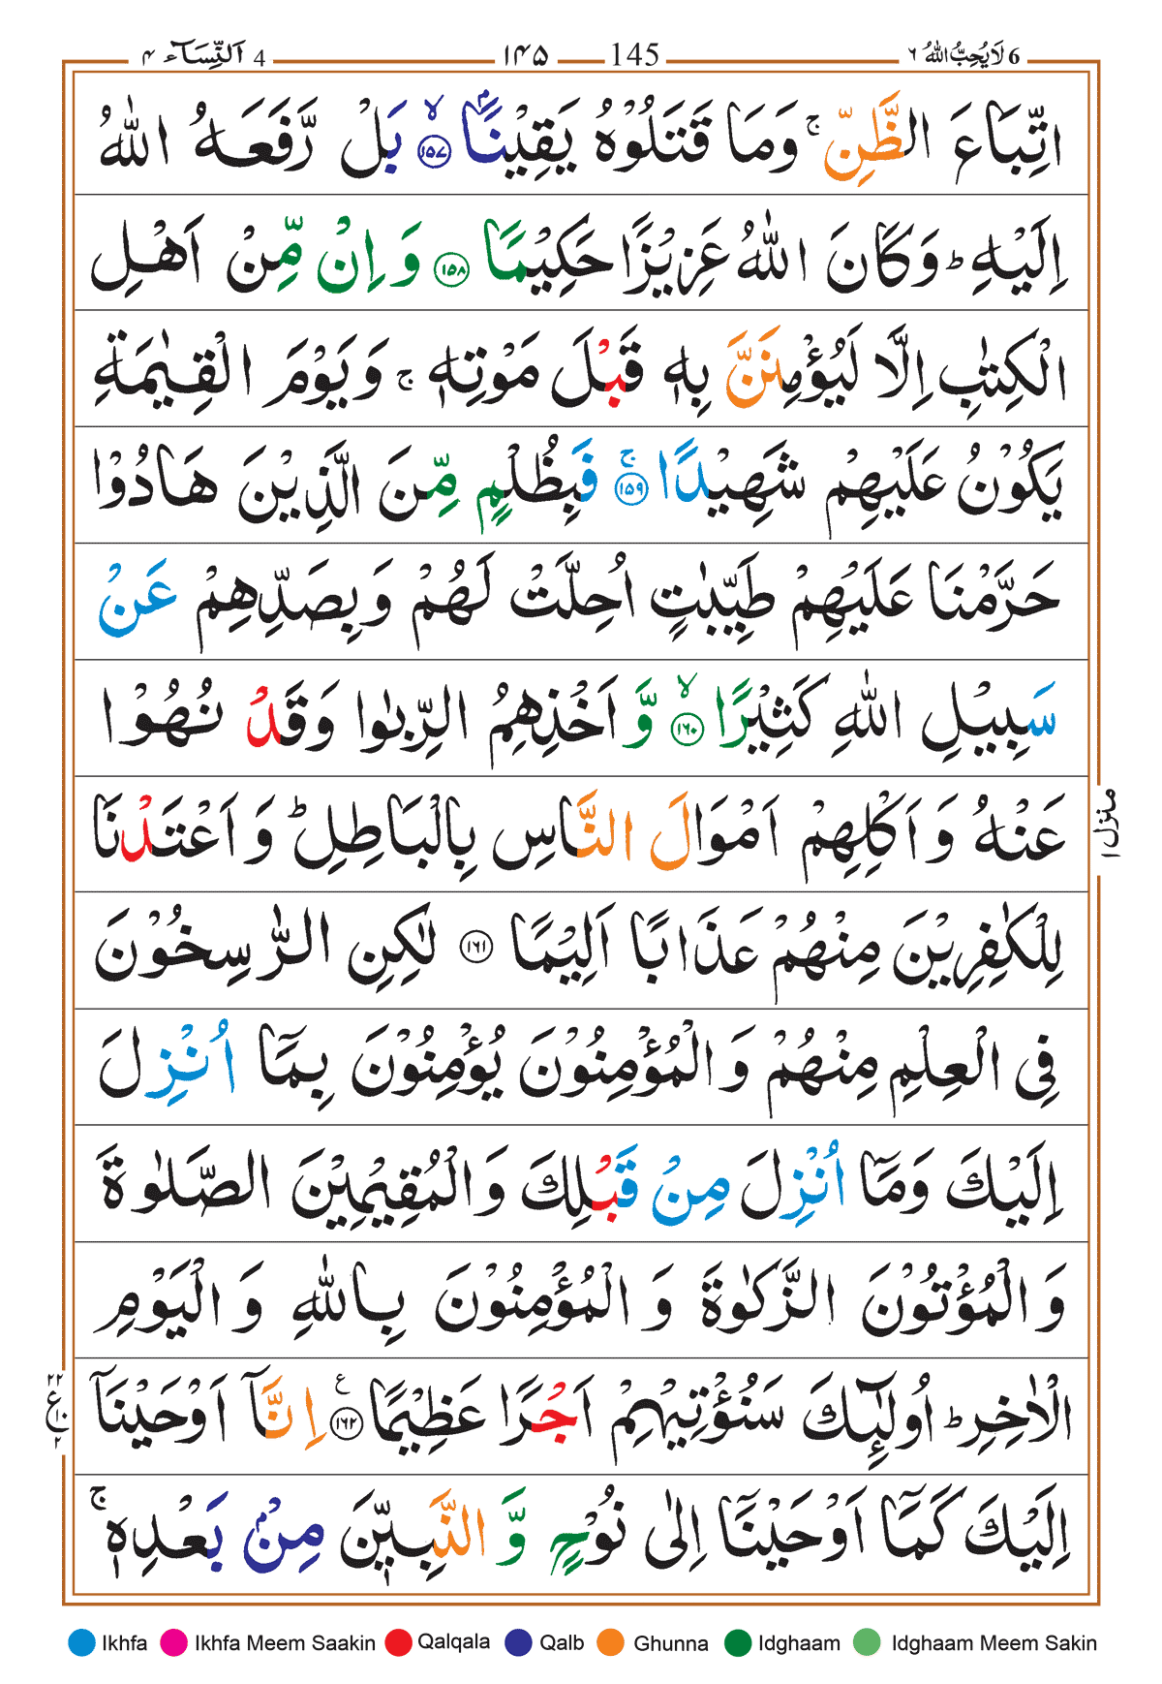 6 لَا يُحِبُّ اللّٰهُ ٦ 145 ۱۴۵ 4 اَلنِّسَآء ۴
اتِّبَاعَ الظَّنِّ ۚ وَمَا قَتَلُوْهُ يَقِيْنًاۢ ۙ‏﴿۱۵۷﴾ بَلْ رَّفَعَهُ اللّٰهُ
اِلَيْهِ ؕ وَكَانَ اللّٰهُ عَزِيْزًا حَكِيْمًا ﴿۱۵۸﴾ وَاِنْ مِّنْ اَهْلِ
الْكِتٰبِ اِلَّا لَيُؤْمِنَنَّ بِهٖ قَبْلَ مَوْتِهٖ ۚ وَيَوْمَ الْقِيٰمَةِ
يَكُوْنُ عَلَيْهِمْ شَهِيْدًا ۚ‏﴿۱۵۹﴾ فَبِظُلْمٍ مِّنَ الَّذِيْنَ هَادُوْا
حَرَّمْنَا عَلَيْهِمْ طَيِّبٰتٍ اُحِلَّتْ لَهُمْ وَبِصَدِّهِمْ عَنْ
سَبِيْلِ اللّٰهِ كَثِيْرًا ۙ‏﴿۱۶۰﴾ وَّاَخْذِهِمُ الرِّبٰوا وَقَدْ نُهُوْا
عَنْهُ وَاَكْلِهِمْ اَمْوَالَ النَّاسِ بِالْبَاطِلِ ؕ وَاَعْتَدْنَا
لِلْكٰفِرِيْنَ مِنْهُمْ عَذَابًا اَلِيْمًا ﴿۱۶۱﴾ لٰكِنِ الرّٰسِخُوْنَ
فِى الْعِلْمِ مِنْهُمْ وَالْمُؤْمِنُوْنَ يُؤْمِنُوْنَ بِمَآ اُنْزِلَ
اِلَيْكَ وَمَآ اُنْزِلَ مِنْ قَبْلِكَ وَالْمُقِيْمِيْنَ الصَّلٰوةَ
وَالْمُؤْتُوْنَ الزَّكٰوةَ وَالْمُؤْمِنُوْنَ بِاللّٰهِ وَالْيَوْمِ
الْاٰخِرِ ؕ اُولٰٓئِكَ سَنُؤْتِيْهِمْ اَجْرًا عَظِيْمًا ﴿۱۶۲﴾ ع اِنَّآ اَوْحَيْنَآ
اِلَيْكَ كَمَآ اَوْحَيْنَآ اِلٰى نُوْحٍ وَّالنَّبِيّٖنَ مِنْۢ بَعْدِهٖ ۚ
منزل ۱
۲۲ ع ۱۰ ۲
Ikhfa Ikhfa Meem Saakin Qalqala Qalb Ghunna Idghaam Idghaam Meem Sakin